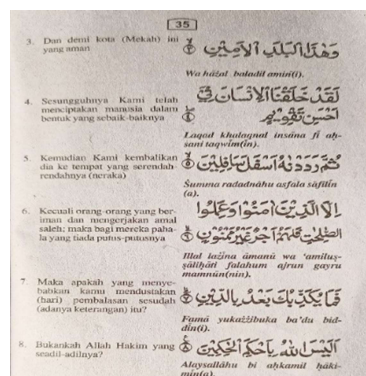 35
3. Dan demi kota (Mekah) ini
yang aman
وَهٰذَا الْبَلَدِ الْاَمِيْنِ
Wa hāżal baladil amīn(i).
4. Sesungguhnya Kami telah
menciptakan manusia dalam
bentuk yang sebaik-baiknya
لَقَدْ خَلَقْنَا الْاِنْسَانَ فِيْٓ
اَحْسَنِ تَقْوِيْمٍ
Laqad khalaqnal insāna fī aḥ-
sani taqwīm(in).
5. Kemudian Kami kembalikan
dia ke tempat yang serendah-
rendahnya (neraka)
ثُمَّ رَدَدْنٰهُ اَسْفَلَ سَافِلِيْنَ
Ṡumma radadnāhu asfala sāfilīn
(a).
6. Kecuali orang-orang yang ber-
iman dan mengerjakan amal
saleh; maka bagi mereka paha-
la yang tiada putus-putusnya
اِلَّا الَّذِيْنَ اٰمَنُوْا وَعَمِلُوا
الصّٰلِحٰتِ فَلَهُمْ اَجْرٌ غَيْرُ مَمْنُوْنٍ
Illal lażīna āmanū wa 'amiluṣ-
ṣāliḥāti falahum ajrun gayru
mamnūn(in).
7. Maka apakah yang menye-
babkan kamu mendustakan
(hari) pembalasan sesudah
(adanya keterangan) itu?
فَمَا يُكَذِّبُكَ بَعْدُ بِالدِّيْنِ
Famā yukażżibuka ba'du bid-
dīn(i).
8. Bukankah Allah Hakim yang
seadil-adilnya?
اَلَيْسَ اللّٰهُ بِاَحْكَمِ الْحٰكِمِيْنَ
Alaysallāhu bi aḥkamil ḥāki-
mīn(a).